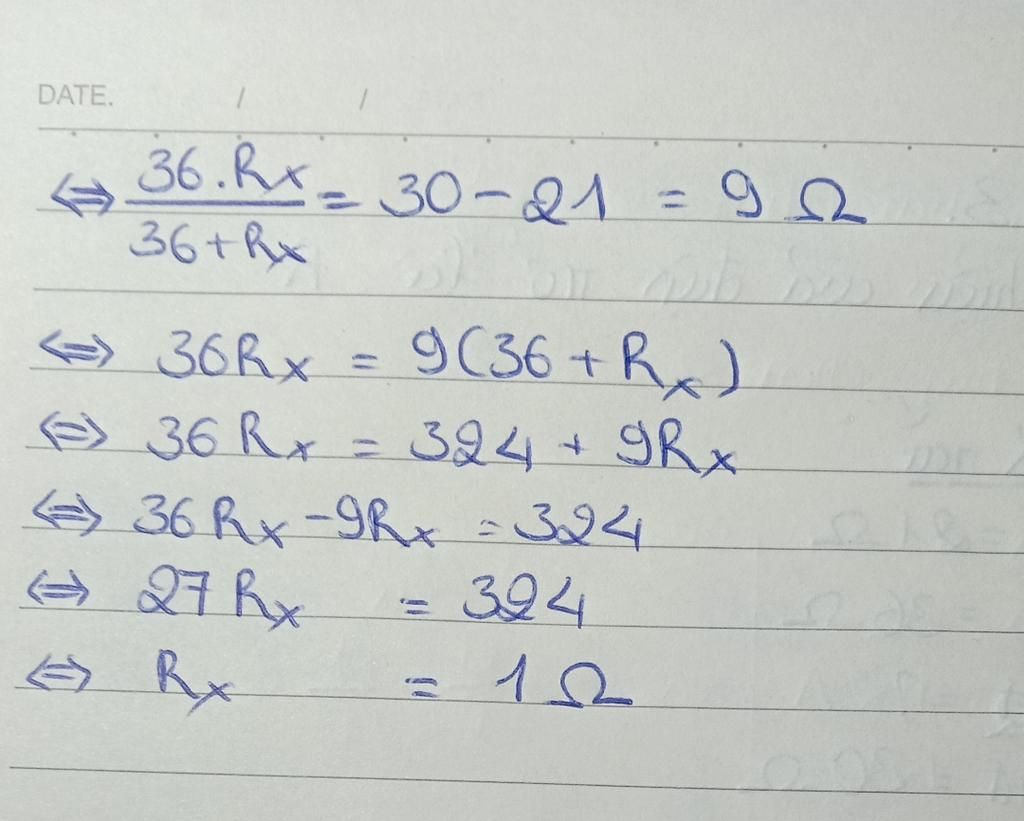 DATE. / /
⇔ 36.Rx / 36+Rx = 30 - 21 = 9 Ω
⇔ 36Rx = 9(36 + Rx)
⇔ 36 Rx = 324 + 9Rx
⇔ 36 Rx - 9Rx = 324
⇔ 27 Rx = 324
⇔ Rx = 1 Ω